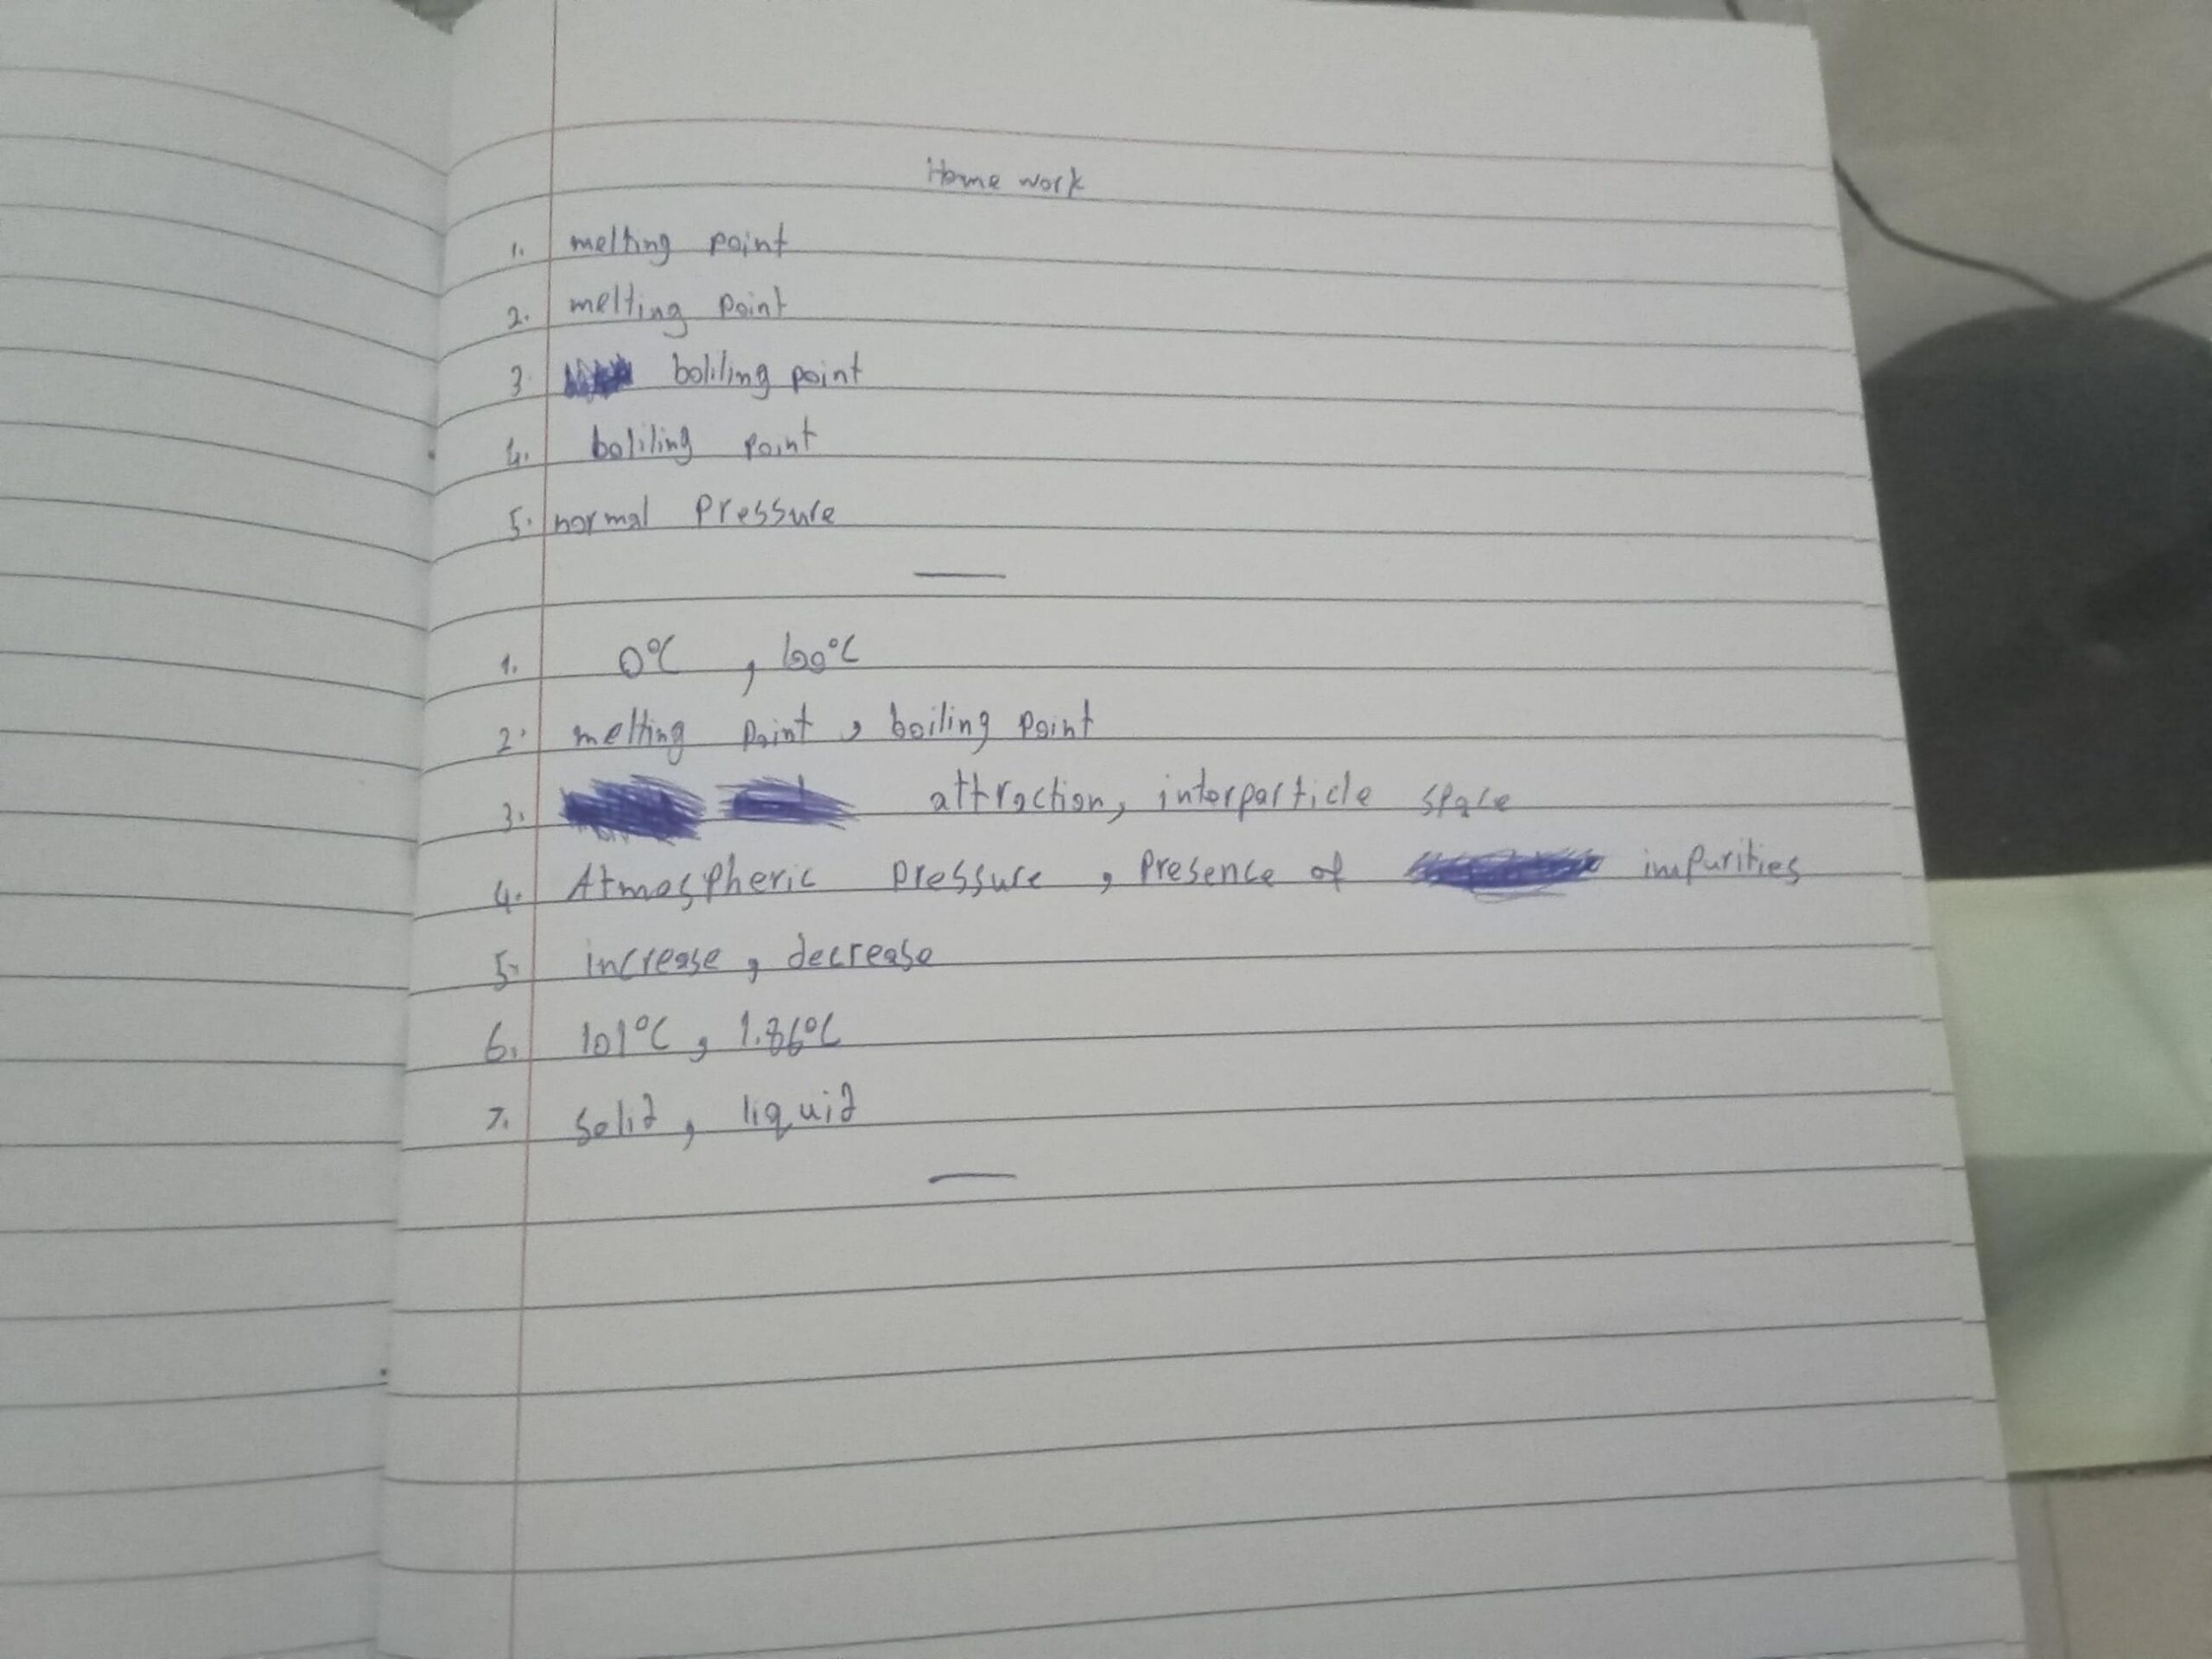 Home work
1. melting point
2. melting point
3. boliling point
4. boliling point
5. normal pressure
1. 0°C , 100°C
2. melting point , boiling point
3. attraction, interparticle space
4. Atmospheric pressure , presence of impurities
5. increase , decrease
6. 101°C , 1.86°C
7. solid , liquid